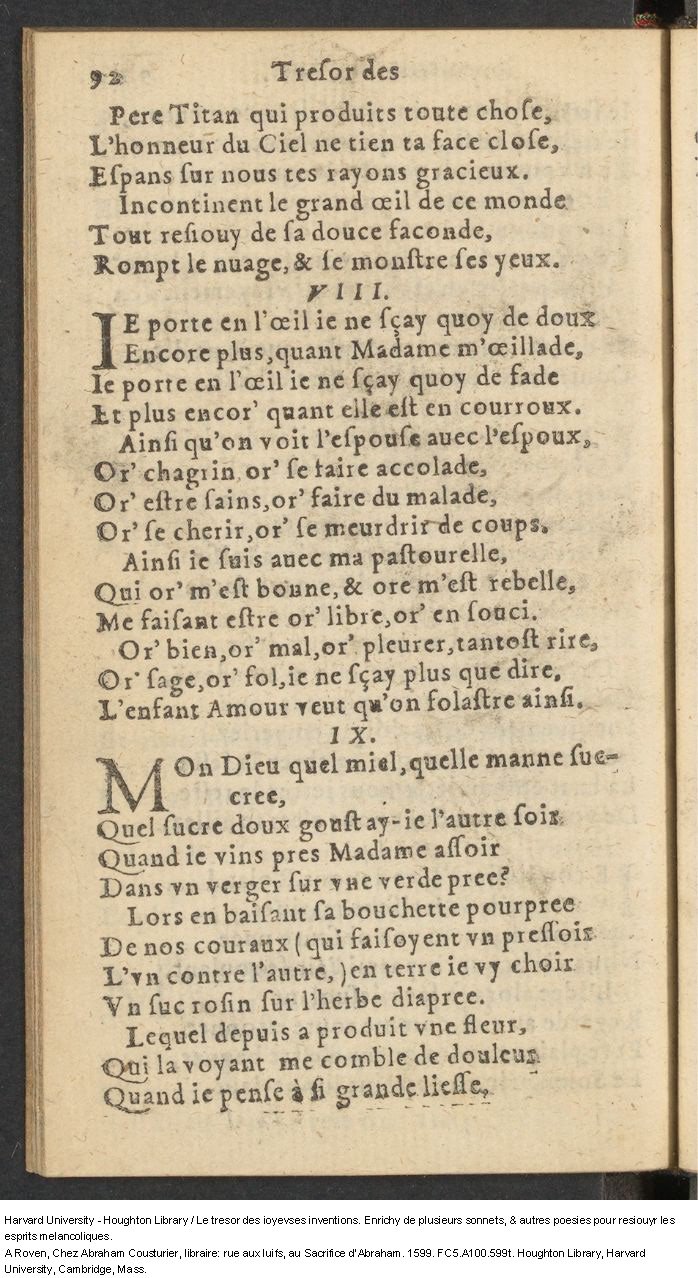 92 Treſor des
Pere Titan qui produits toute choſe,
L'honneur du Ciel ne tien ta face cloſe,
Eſpans ſur nous tes rayons gracieux.
Incontinent le grand œil de ce monde
Tout reſiouy de ſa douce faconde,
Rompt le nuage, & ſe monſtre ſes yeux.
VIII.
IE porte en l'œil ie ne ſçay quoy de doux
Encore plus, quant Madame m'œillade,
Ie porte en l'œil ie ne ſçay quoy de fade
Et plus encor' quant elle eſt en courroux.
Ainſi qu'on voit l'eſpouſe auec l'eſpoux,
Or' chagrin, or' ſe faire accolade,
Or' eſtre ſains, or' faire du malade,
Or' ſe cherir, or' ſe meurdrir de coups.
Ainſi ie ſuis auec ma paſtourelle,
Qui or' m'eſt bonne, & ore m'eſt rebelle,
Me faiſant eſtre or' libre, or' en ſouci.
Or' bien, or' mal, or' pleurer, tantoſt rire,
Or' ſage, or' fol, ie ne ſçay plus que dire,
L'enfant Amour veut qu'on folaſtre ainſi.
IX.
MOn Dieu quel miel, quelle manne ſuc-
cree,
Quel ſucre doux gouſtay-ie l'autre ſoir
Quand ie vins pres Madame aſſoir
Dans vn verger ſur vne verde pree?
Lors en baiſant ſa bouchette pourpree
De nos couraux (qui faiſoyent vn preſſoir
L'vn contre l'autre,) en terre ie vy choir
Vn ſuc roſin ſur l'herbe diapree.
Lequel depuis a produit vne fleur,
Qui la voyant me comble de douleur
Quand ie penſe à ſi grande lieſſe,
Harvard University - Houghton Library / Le tresor des ioyevses inventions. Enrichy de plusieurs sonnets, & autres poesies pour resiouyr les
esprits melancoliques.
A Roven, Chez Abraham Cousturier, libraire: rue aux Iuifs, au Sacrifice d'Abraham. 1599. FC5.A100.599t. Houghton Library, Harvard
University, Cambridge, Mass.